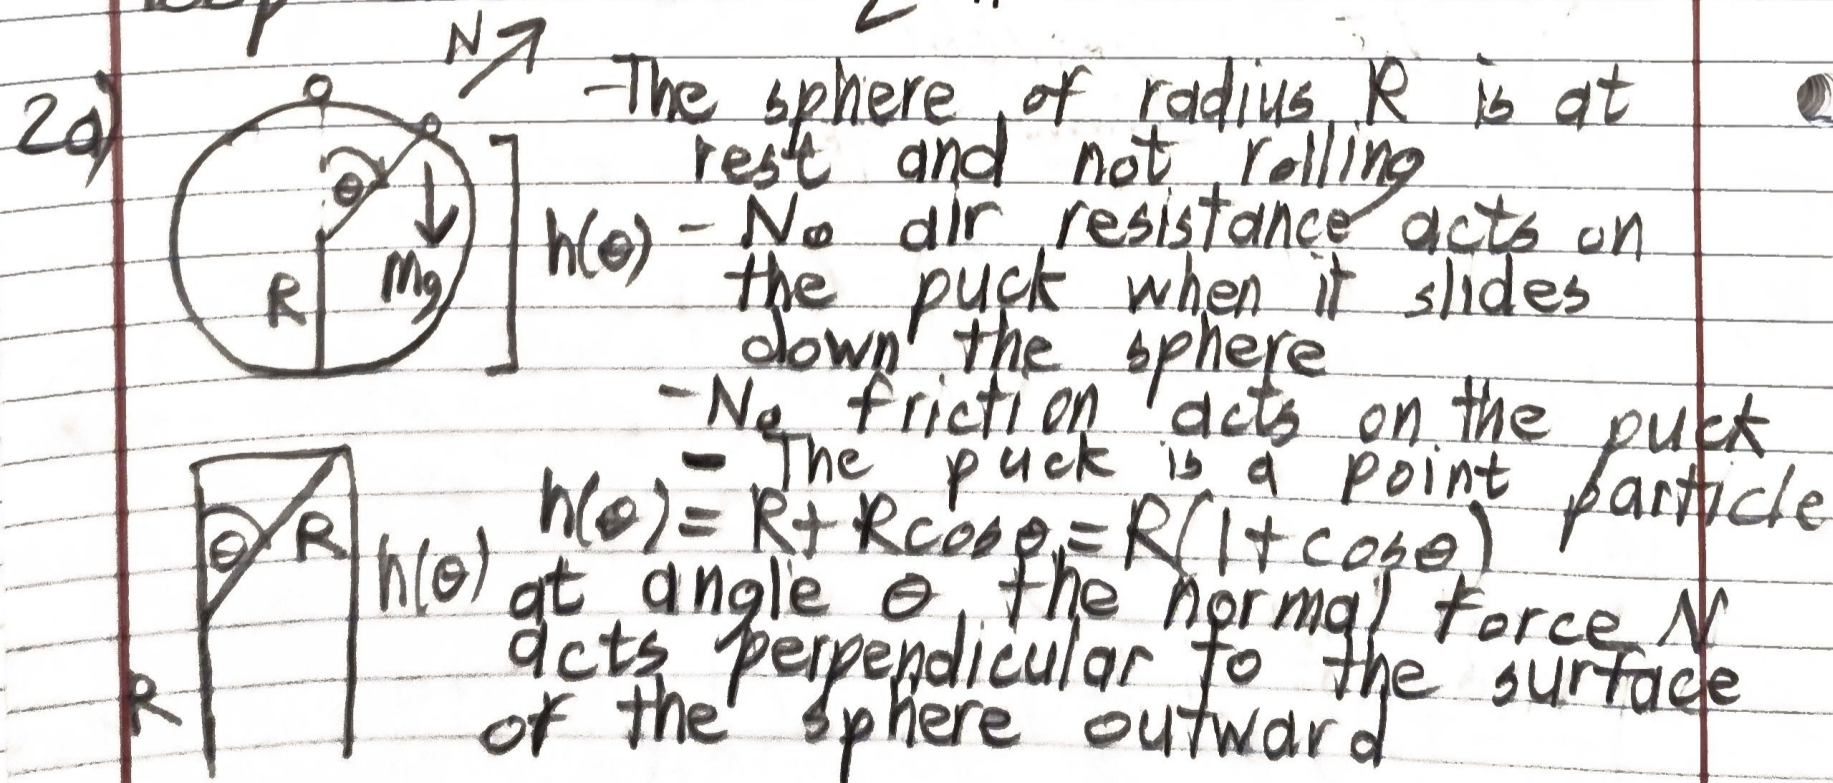 N
2a)
-The sphere of radius R is at
rest and not rolling
θ
h(θ)
- No air resistance acts on
R
Mg
the puck when it slides
down the sphere
- No friction acts on the puck
- The puck is a point particle
h(θ) = R + Rcosθ = R(1+cosθ)
θ
R
h(θ)
at angle θ, the normal force N
acts perpendicular to the surface
R
of the sphere outward